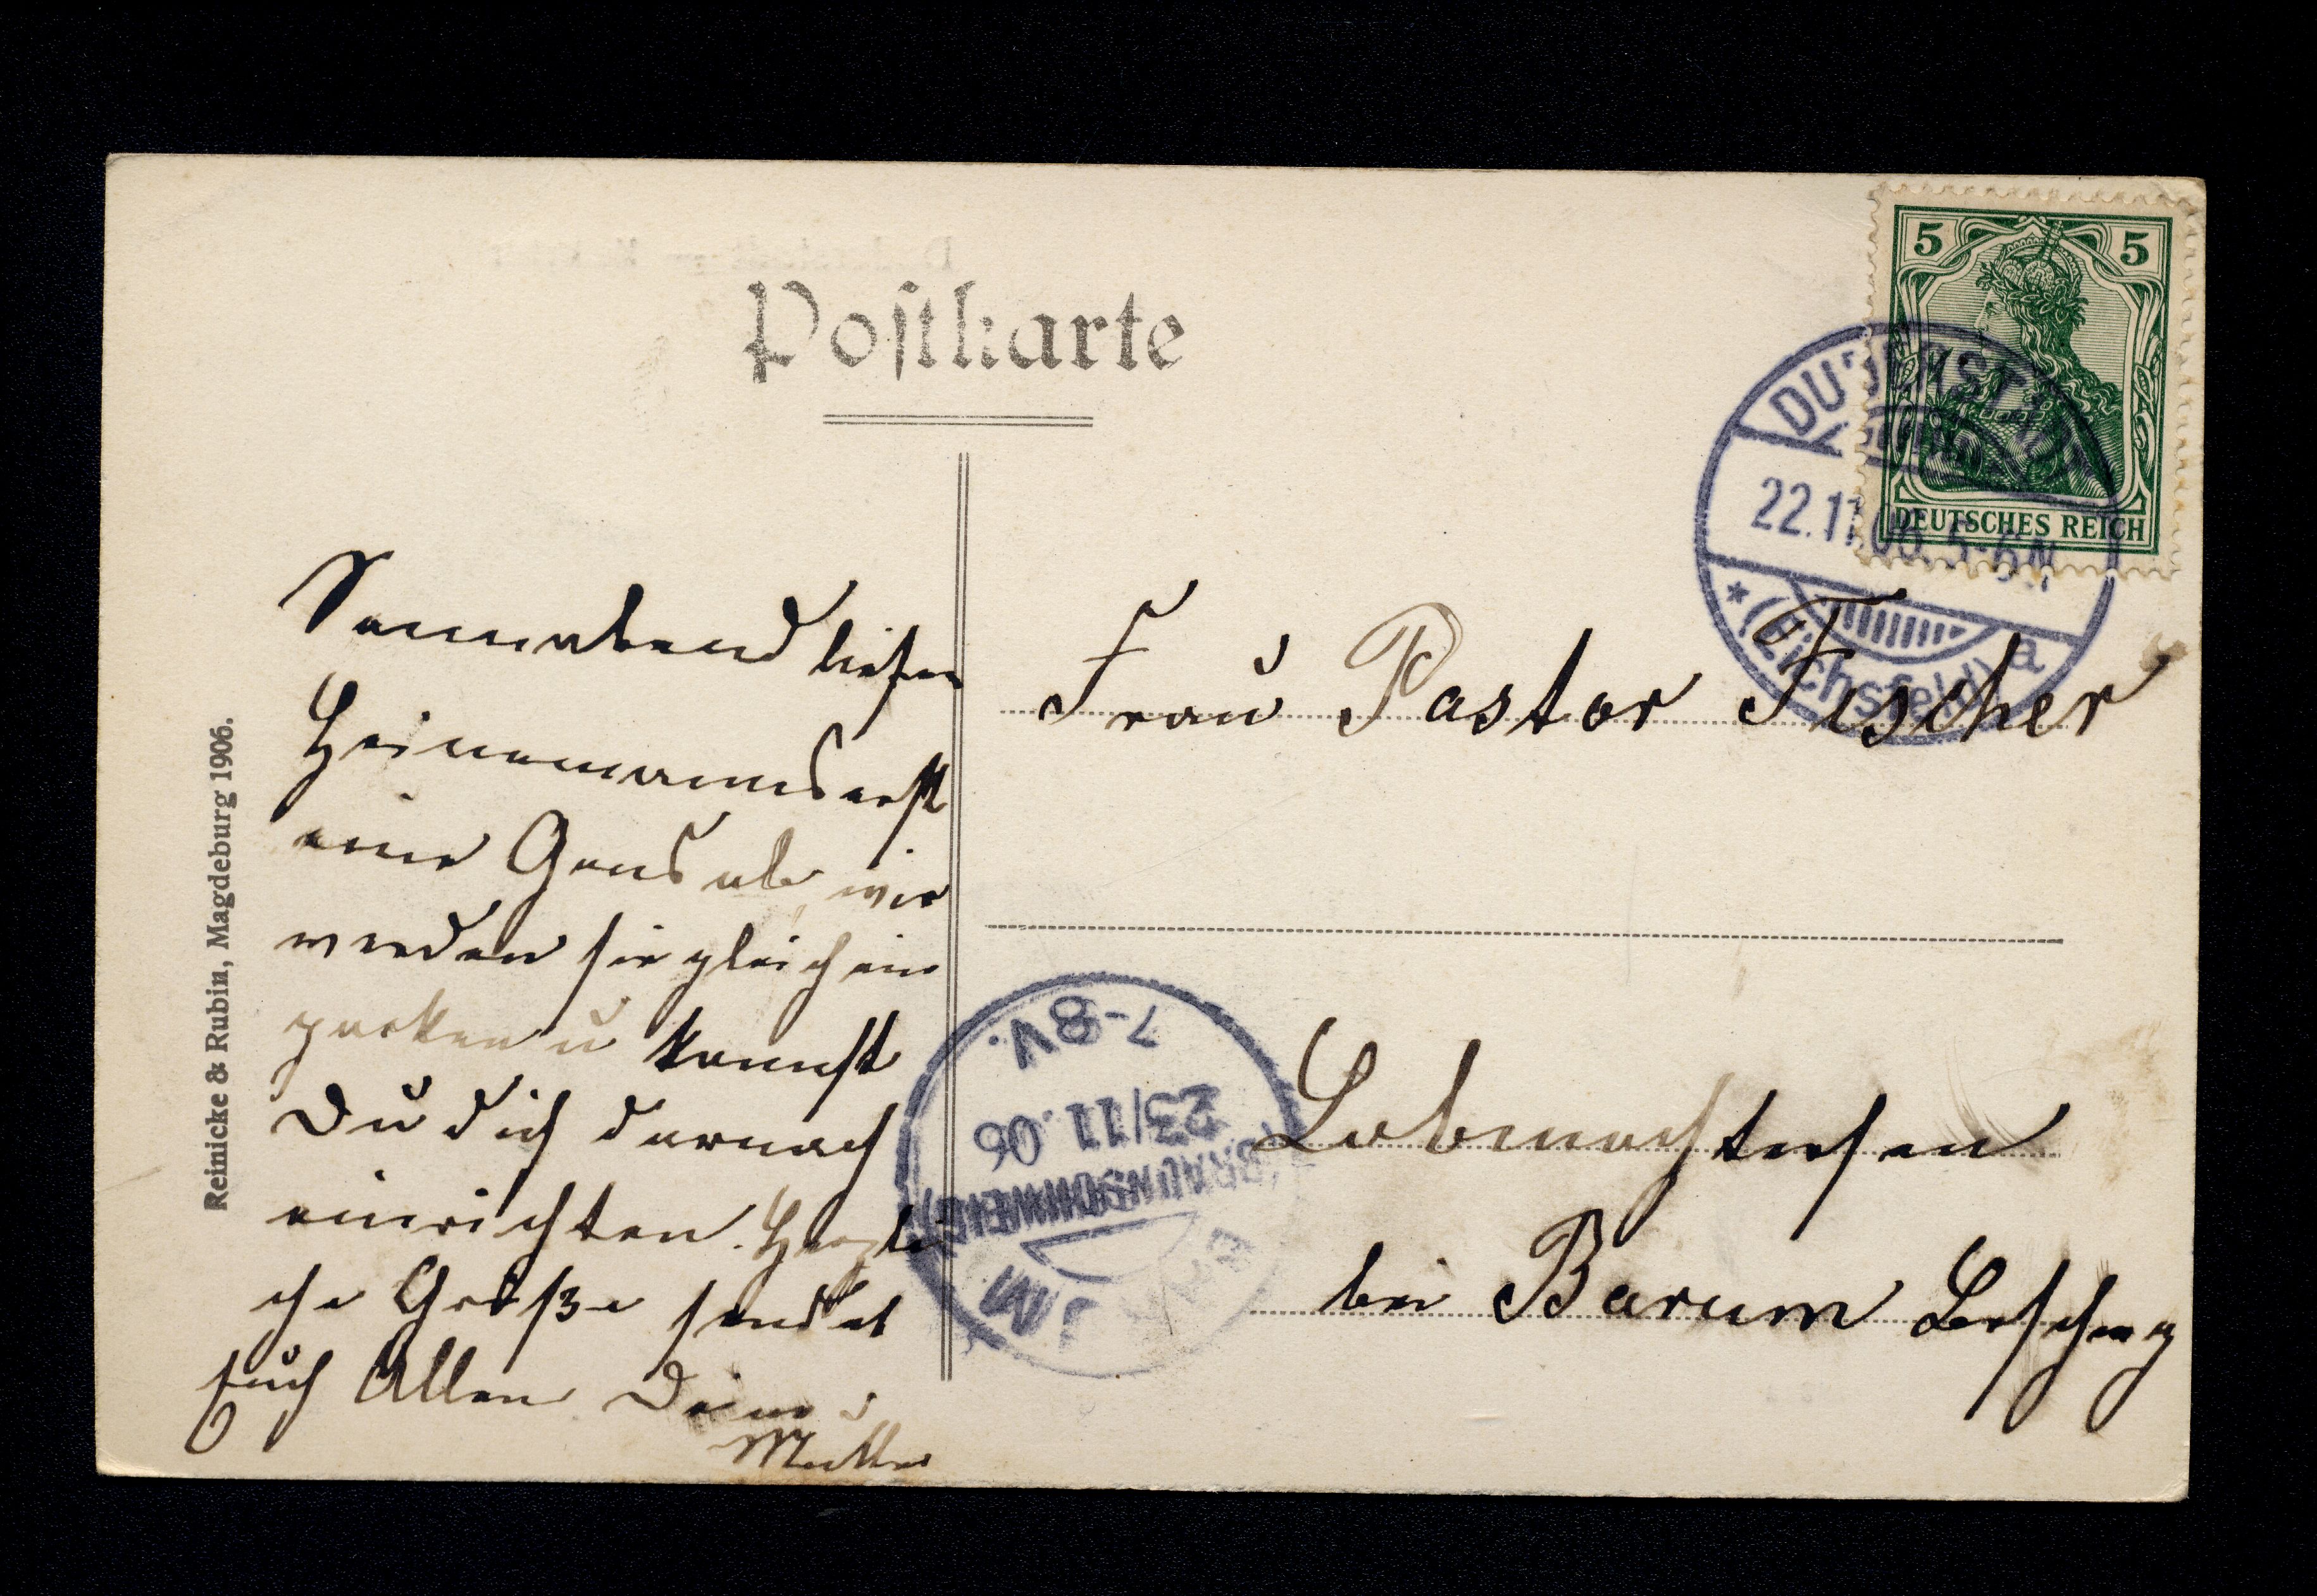 Postkarte
5 5
DEUTSCHES REICH
DUDERSTADT
22.11.06 5-6N
* (Eichsfeld) a
Sonnabend liefern
Heinemanns erst
eine Gans ab, wir
werden sie gleich ein
packen u kannst
Du dich darnach
einrichten. Herzli
che Grüße sendet
Euch Allen Deine
Mutter
Frau Pastor Fischer
Lobmachtersen
bei Barum Brschwg
7-8V.
23/11.06
(BRAUNSCHWEIG)
BARUM
Reinicke & Rubin, Magdeburg 1906.